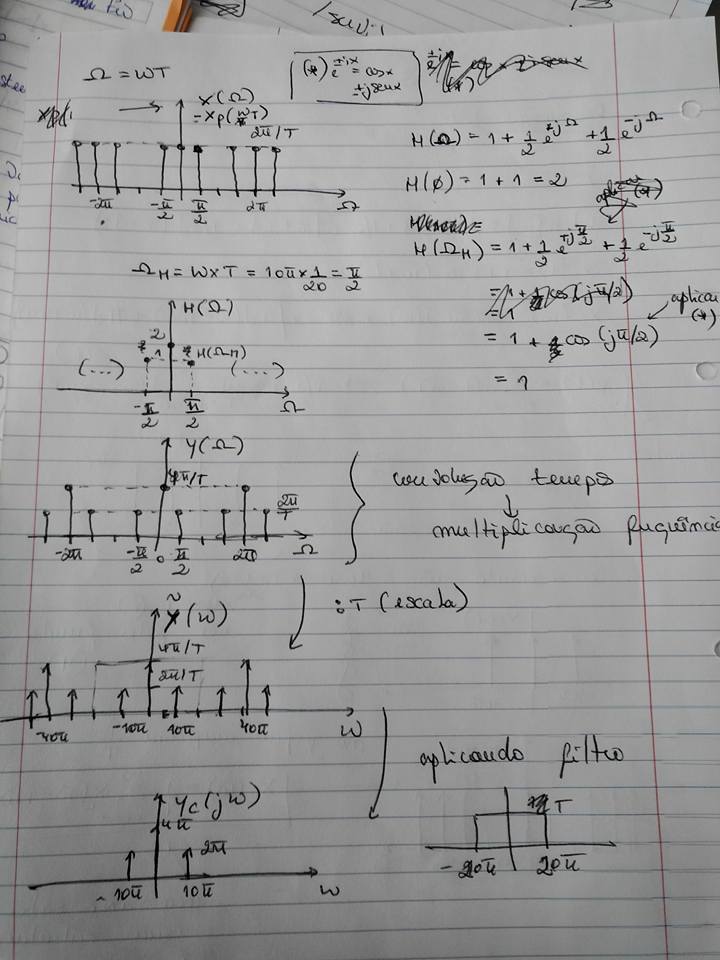 Ω = WT
(*) e^±jx = cosx ±jsenx
X(Ω)
= Xp(W/T)
2π/T
-2π -π/2 π/2 2π Ω
H(Ω) = 1 + 1/2 e^jΩ + 1/2 e^-jΩ
H(φ) = 1 + 1 = 2
aplicar (*)
H(Ω_H) = 1 + 1/2 e^+jπ/2 + 1/2 e^-jπ/2
Ω_H = W x T = 10π x 1/20 = π/2
H(Ω)
2
1 H(Ω_H)
(...) (...)
-π/2 π/2 Ω
aplicar (*)
= 1 + cos(jπ/2)
= 1
Y(Ω)
4π/T
2π/T
-2π -π/2 0 π/2 2π Ω
convolução tempo
↓
multiplicação frequência
:T (escala)
~
Y(W)
4π/T
2π/T
-40π -10π 10π 40π W
aplicando filtro
T
-20π 20π
Yc(jW)
4π
2π
-10π 10π W